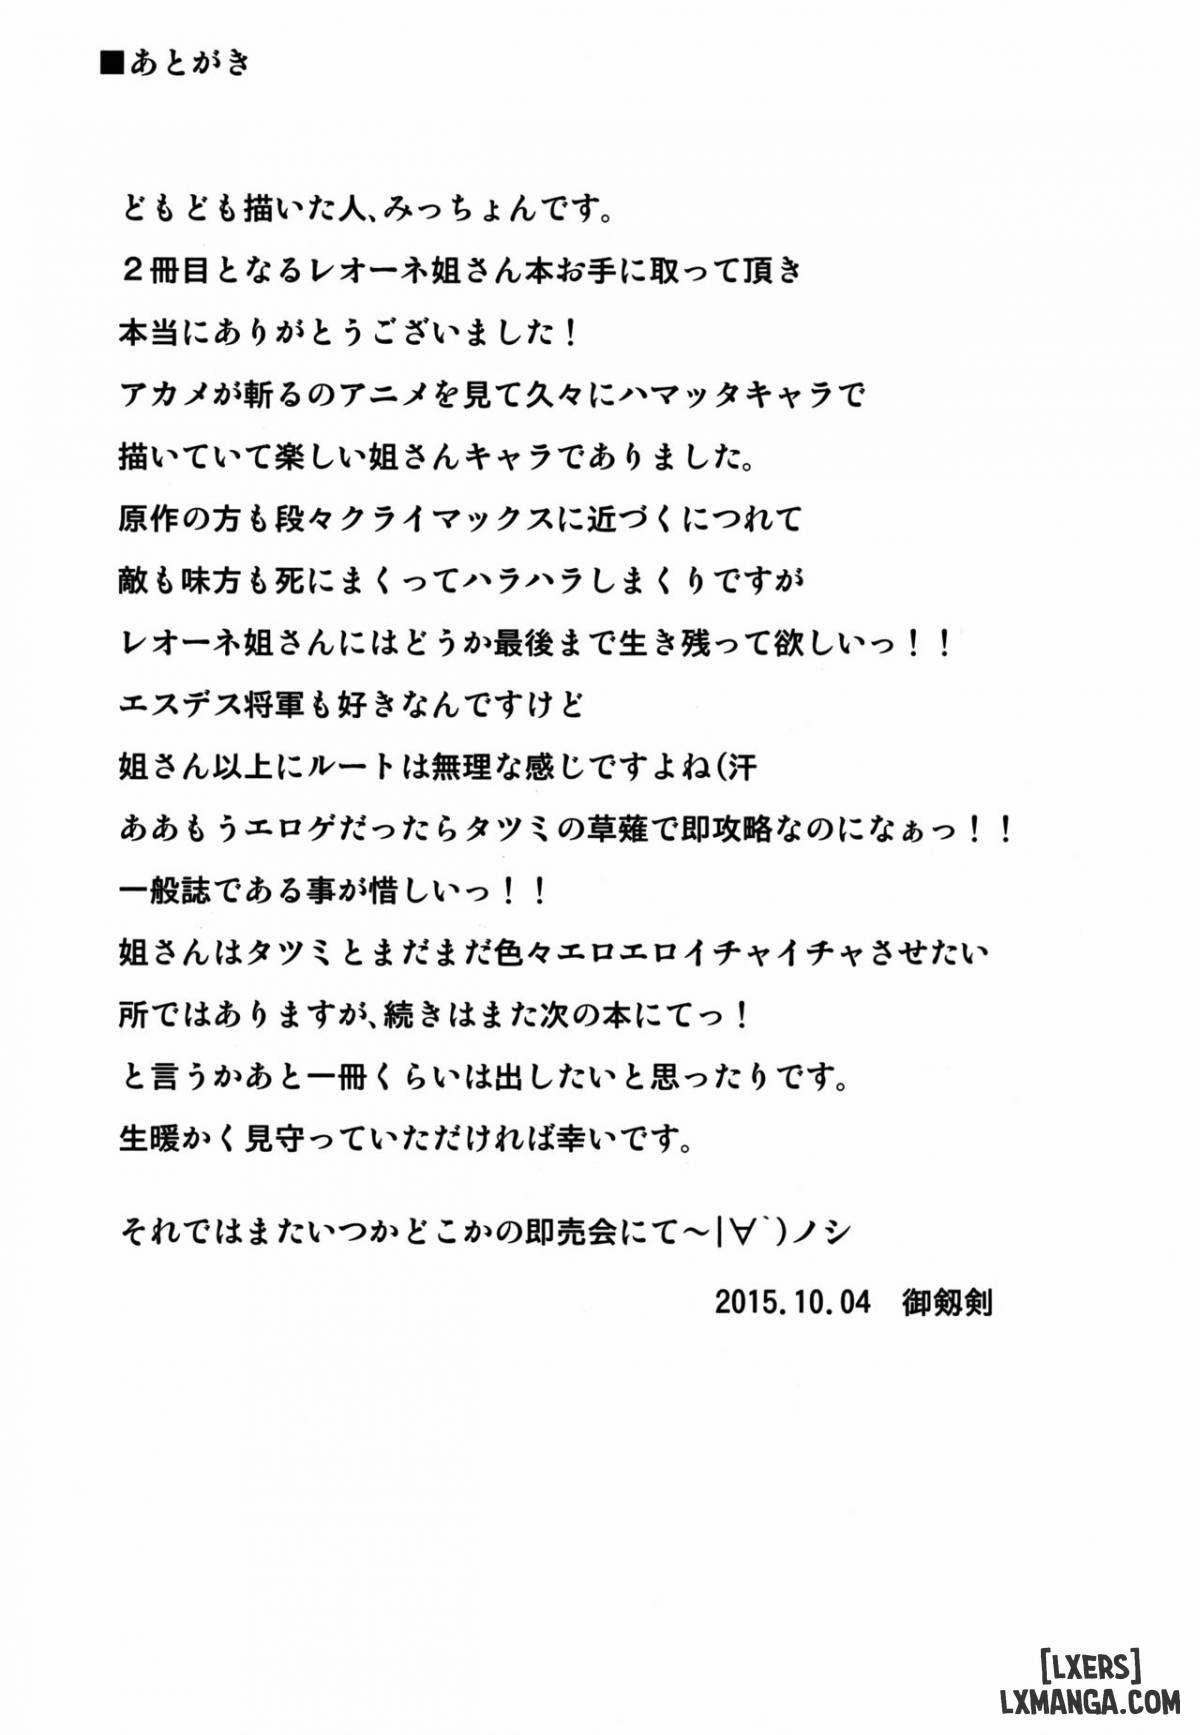 ■あとがき
どもども描いた人､みっちょんです。
２冊目となるレオーネ姐さん本お手に取って頂き
本当にありがとうございました！
アカメが斬るのアニメを見て久々にハマッタキャラで
描いていて楽しい姐さんキャラでありました。
原作の方も段々クライマックスに近づくにつれて
敵も味方も死にまくってハラハラしまくりですが
レオーネ姐さんにはどうか最後まで生き残って欲しいっ！！
エスデス将軍も好きなんですけど
姐さん以上にルートは無理な感じですよね(汗
ああもうエロゲだったらタツミの草薙で即攻略なのになぁっ！！
一般誌である事が惜しいっ！！
姐さんはタツミとまだまだ色々エロエロイチャイチャさせたい
所ではありますが､続きはまた次の本にてっ！
と言うかあと一冊くらいは出したいと思ったりです。
生暖かく見守っていただければ幸いです。
それではまたいつかどこかの即売会にて～|∀`)ノシ
2015.10.04　御剱剣
[LXERS]
LXMANGA.COM